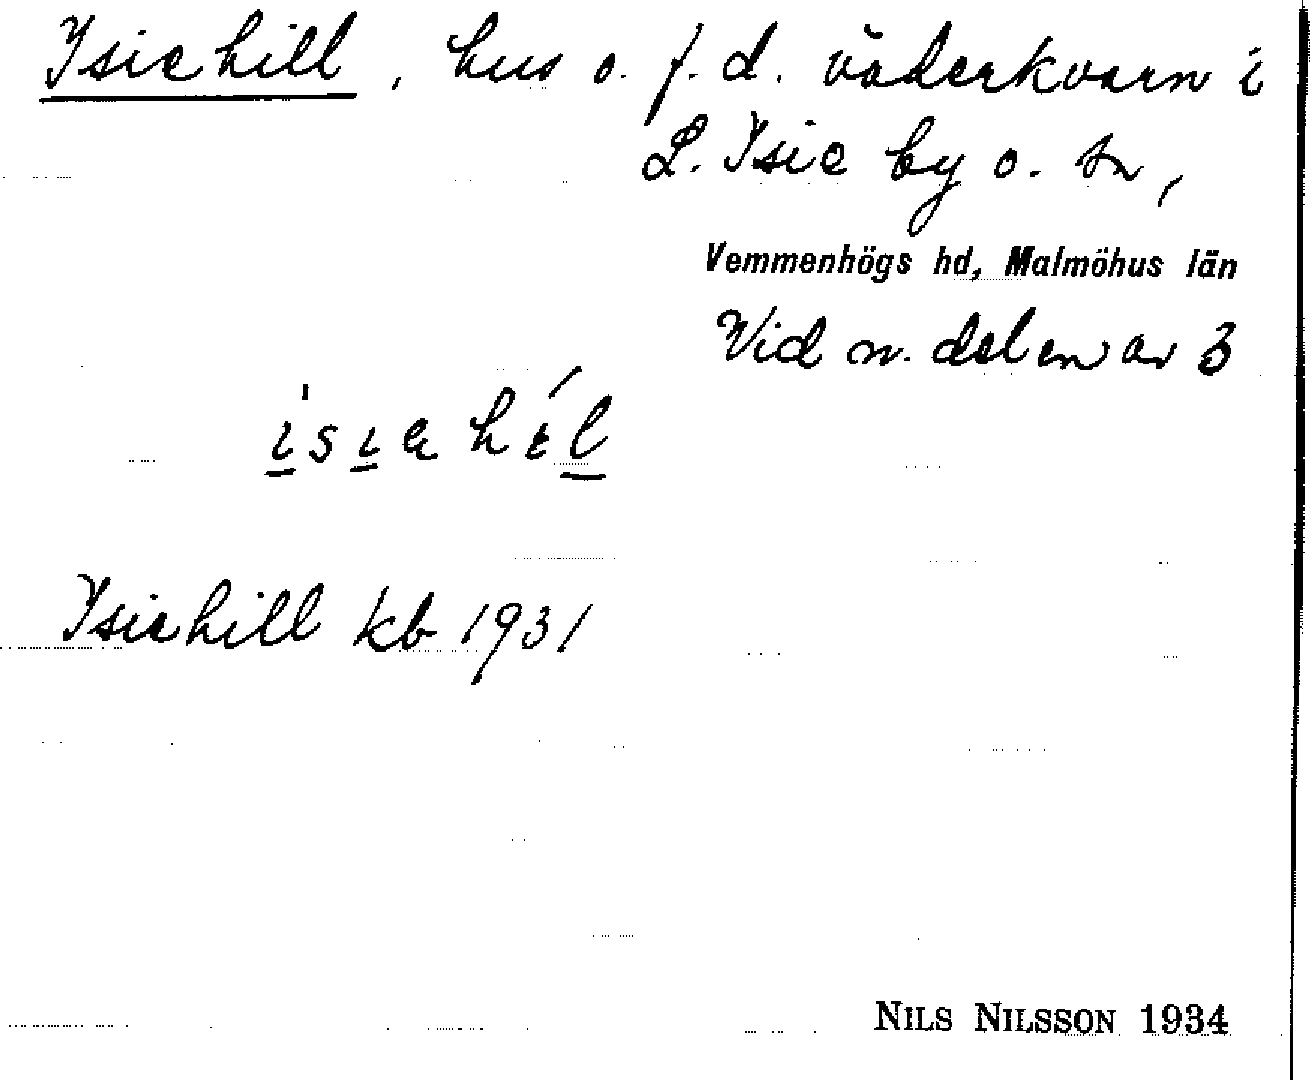 Isiehill, hus o. f.d. väderkvarn i
L. Isie by o. sn,
Vemmenhögs hd, Malmöhus län
Vid n. delen av 3
Isiehill kb 1931
NILS NILSSON 1934